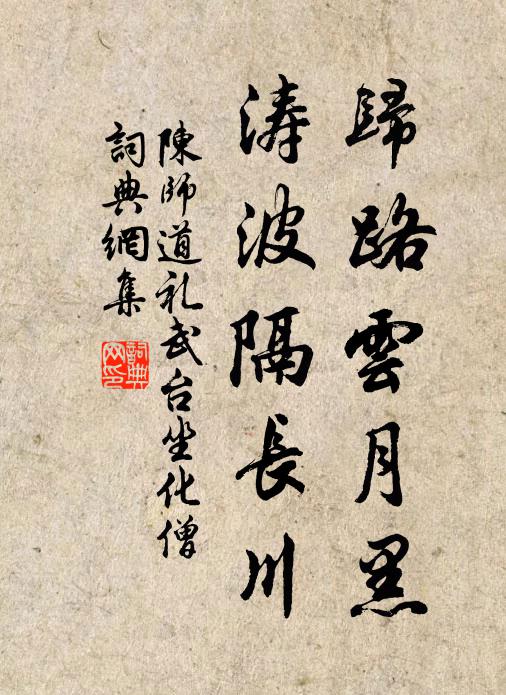 歸路雲月黑
涛波隔長川
陳師道礼武台坐化僧
詞典網集
詞典
网印